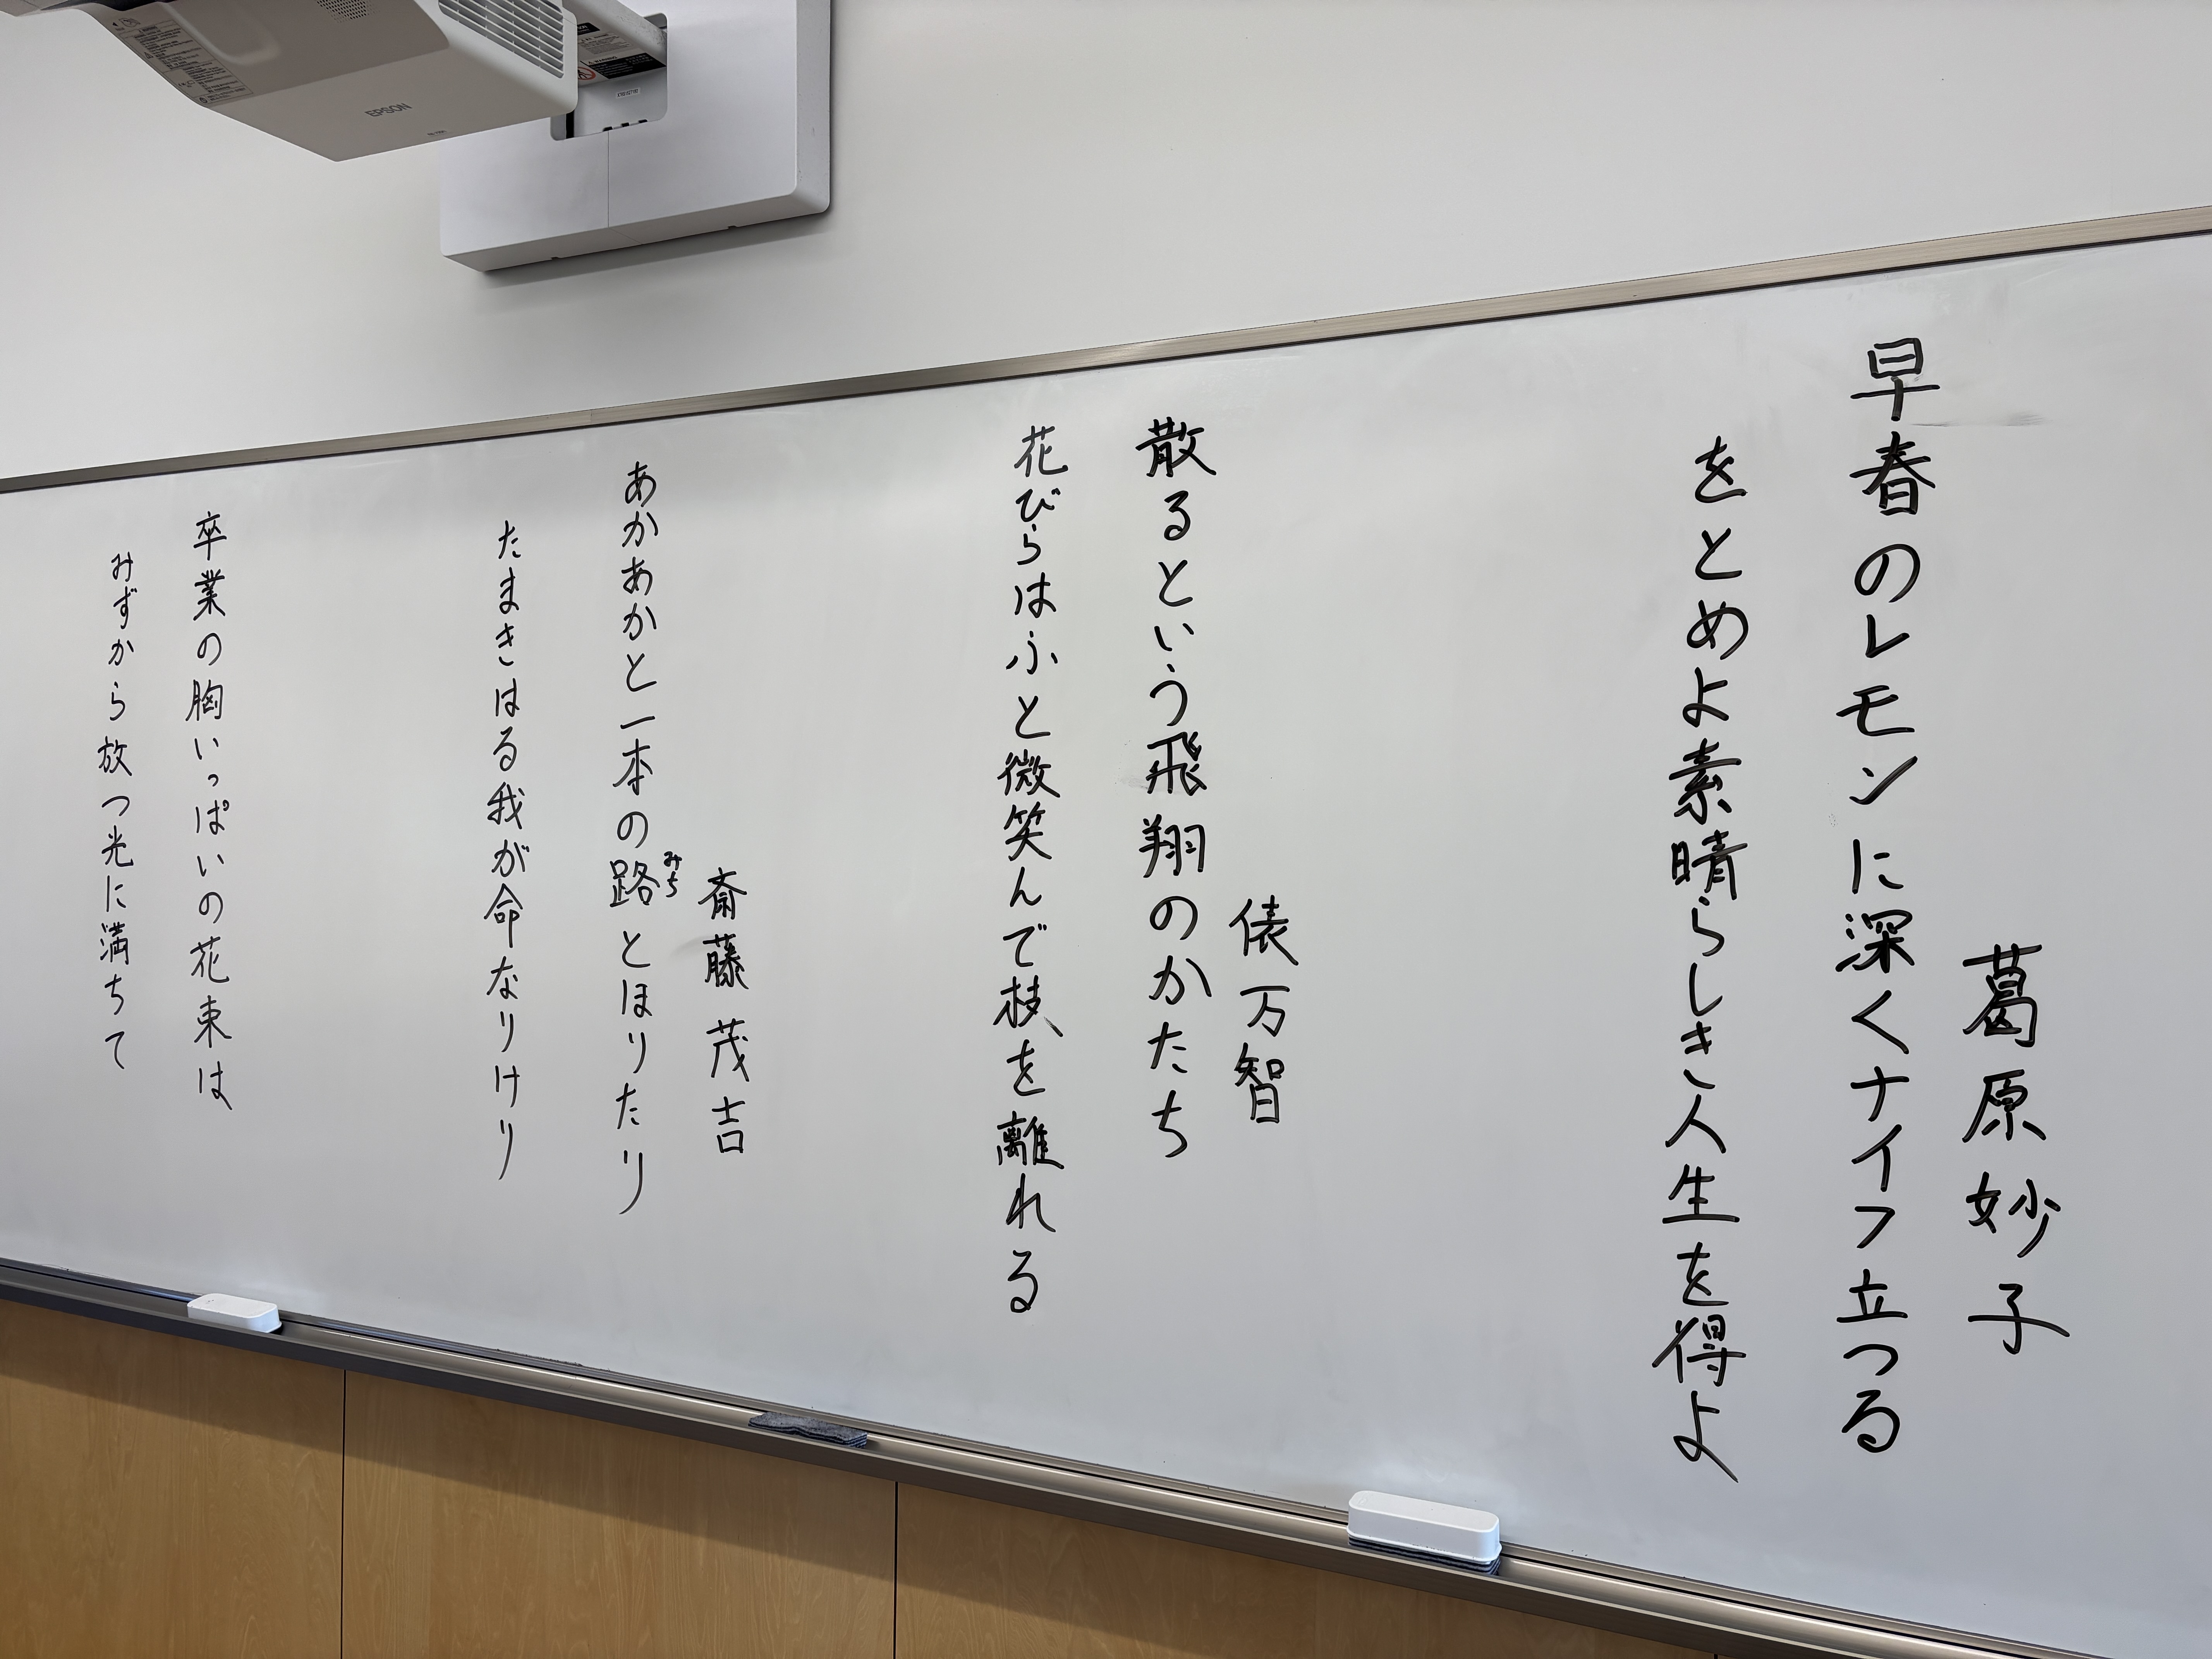 葛原妙子
早春のレモンに深くナイフ立つる
をとめよ素晴らしき人生を得よ
俵万智
散るという飛翔のかたち
花びらはふと微笑んで枝を離れる
斎藤茂吉
あかあかと一本の路とほりたり
みち
たまきはる我が命なりけり
卒業の胸いっぱいの花束は
みずから放つ光に満ちて
EPSON